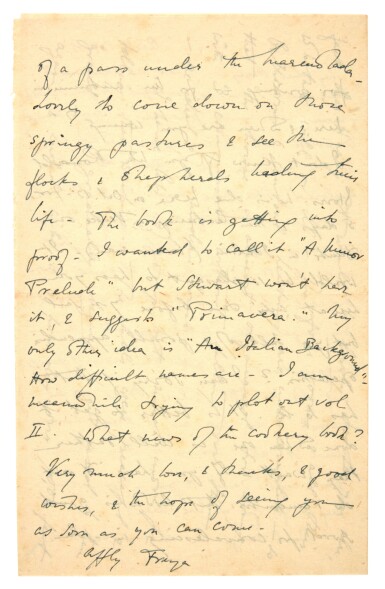 of a pass under the
lovely to come down on those
springy pastures & see the
flocks & shepherds leading their
life – The book is getting into
proof – I wanted to call it "A Minor
Prelude" but Stewart won't hear
it, & suggests "Primavera." My
only other idea is "An Italian Background" –
How difficult names are – I am
meanwhile trying to plot out vol
II. What news of the cookery book?
Very much love, & thanks, & good
wishes, & the hope of seeing you
as soon as you can come –
affly Freya